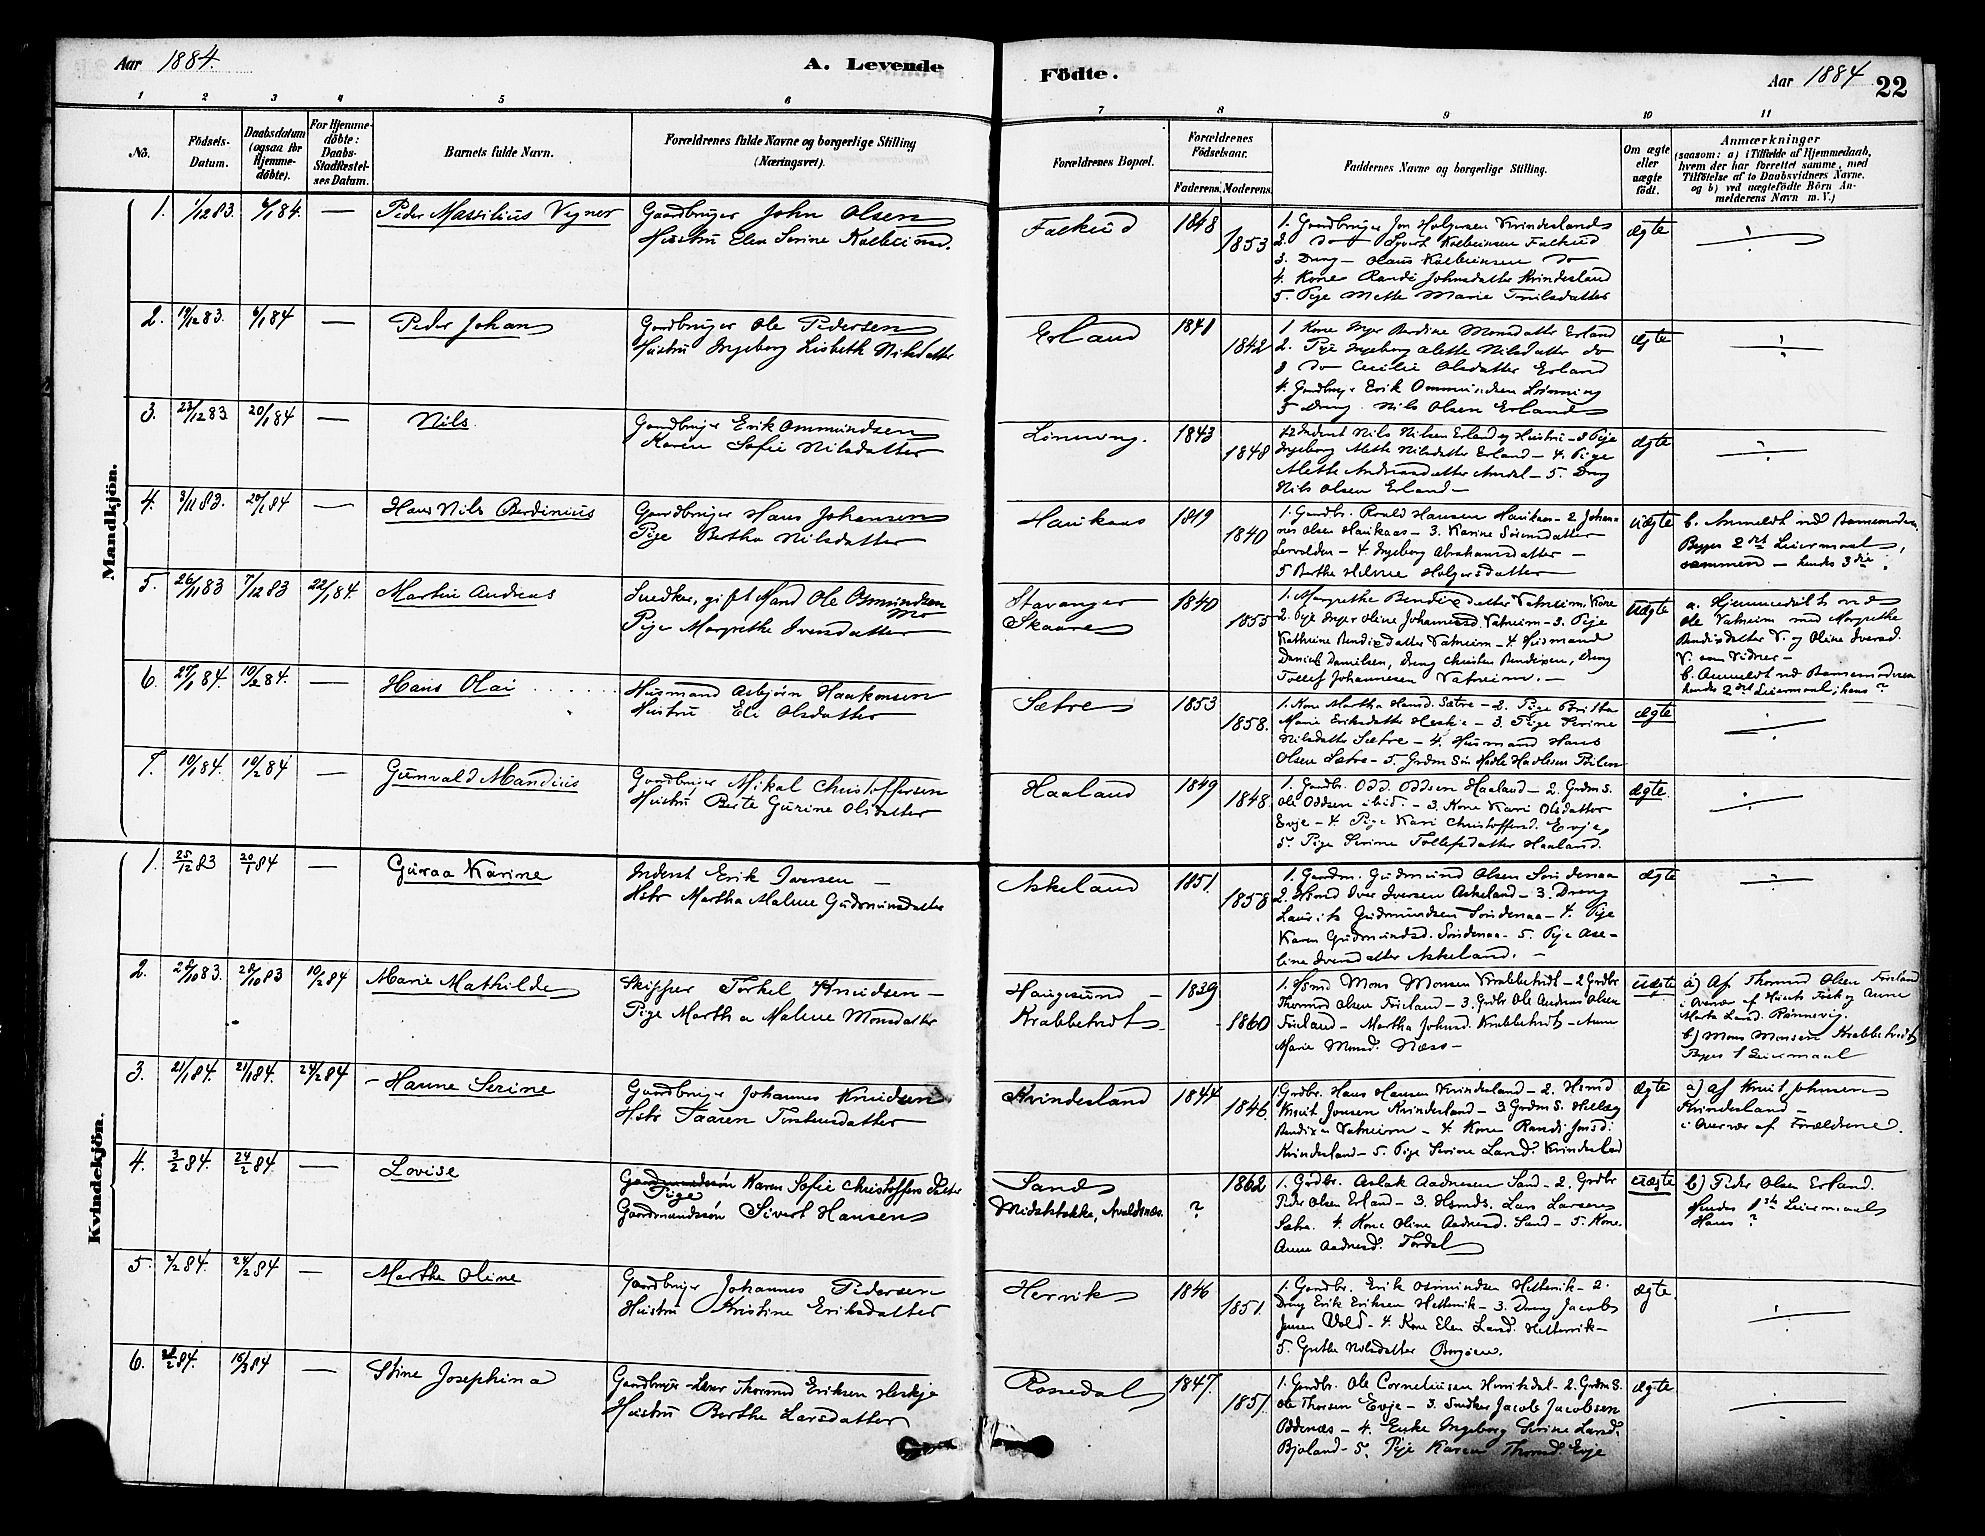 Aar 1884.
A. Levende
Födte.
Aar 1884
22
1 2 3 4 5 6 7 8 9 10 11
No.
Födsels-Datum.
Daabsdatum (ogsaa for Hjemmedöbte).
For Hjemmedöbte: Daabs-Stadfæstelses Datum.
Barnets fulde Navn.
Forældrenes fulde Navne og borgerlige Stilling
(Næringsvei).
Forældrenes Bopæl.
Forældrenes Födselsaar.
Faderens. Moderens.
Faddernes Navne og borgerlige Stilling.
Om ægte eller uægte födt.
Anmærkninger
(saasom: a) i Tilfælde af Hjemmedaab, hvem der har forrettet samme, med Tilföielse af to Daabsvidners Navne, og b) ved uægtefödte Börn Anmelderens Navn m. V.)
Mandkjön.
1. 1/12 83. 6/1 84. — Peder Massilius Vegner
Gaardbruger John Olsen
Hustru Elen Serine Kolbeinsd.
Falkeid 1848 1853
1. Gaardbruger Jon Holgersen Kvindesland
2. do Sjvert Kolbeinsen Falkeid
3. Dreng — Olaus Kolbeinsen do
4. Kone Randi Johnsdatter Kvindesland
5. Pige Mette Marie Truilsdatter
ægte
2. 19/12 83. 6/1 84 — Peder Johan
Gardbruger Ole Pedersen
Hustru Ingeborg Lisbeth Nilsdatter
Erland 1841 1842
1 Kone Inger Berdine Monsdatter Erland
2. Pige Ingeborg Alette Nilsdatter do
3 do Cecilie Olsdatter Erland
4. Gardbruger Erik Ommundsen Lönning
5 Dreng Nils Olsen Erland
ægte
3. 23/12 83. 20/1 84 — Nils.
Gaardbruger Erik Ommundsen
Karen Sofie Nilsdatter
Lönning. 1843 1848
1 2 Inderst Nils Nilsen Erland og Hustru — 3 Pige
Ingeborg Alette Nilsdatter Erland — 4. Pige
Alette Andreasdatter — 5. Dreng
Nils Olsen Erland —
ægte
4. 3/11 83. 20/1 84 — Hans Nils Berdinius
Gaardbruger Hans Johansen
Pige Bertha Nilsdatter
Haukaas 1819 1840
1. Gaardbr. Roald Hansen Haukaas — 2 Johannes Olsen Haukaas — 3. Karine Sörensdatter
— 4 Ingeborg Abrahamsdatter —
5 Berthe Helene Holgersdatter
uægte
b. Anmeldt ved Barnemoderen
Begges 2det Leiermaal
sammen — hendes 3die.
5. 26/11 83 7/12 83 22/1 84. Martin Andreas
Snedker, gift Mand Ole Osmundsen
Pige Margrethe Iversdatter
Stavanger
Skaare 1840 1855
1. Margrethe Bendixdatter Vatneim, Kone
2. Pige Inger Oline Johannesd. Vatneim — 3. Pige
Kathrine Bendixdatter Vatneim — 4 Husmand
Daniel Danielsen, Dreng Christen Bendixen, Dreng
Tollef Johannesen Vatneim. —
uægte
a. Hjemmedöbt ved
Ole Vatneim med Margrethe
Bendixdatter V. og Oline Iversd.
V. som Vidner —
b. Anmeldt ved Barnemoderen
hendes 2det Leiermaal, hans ?
6. 27/1 84. 10/2 84. — Hans Olai
Husmand Asbjörn Haakonsen
Hustru Eli Olsdatter
Sætre 1853 1858.
1. Kone Martha Hansd. Sætre — 2. Pige Britha
Marie Eriksdatter Heskje — 3. Pige Serine
Nilsdatter Sætre — 4. Husmand Hans
Olsen Sætre — 5. Grdm Sön
ægte
7. 10/1 84. 10/2 84 — Gunvald Mandius
Gaardbruger Mikal Christoffersen
Hustru Berte Gurine Olsdatter
Haaland 1849 1848.
1. Gaardbr. Odd Oddsen Haaland — 2. Grdm S.
Ole Oddsen ibid. — 3. Kone Kari Olsdatter
Evje — 4. Pige Kari Christoffersd. Evje
5. Pige Serine Tollefsdatter Haaland.
ægte.
Kvindekjön.
1. 25/12 83 20/1 84 — Guroa Karine
Inderst Erik Iversen —
Hstr Martha Malene Gudmundsdatter
Askeland 1851. 1858
1. Gaardm. Gudmund Olsen Söndenaa
2. Hsmd Iver Iversen Askeland — 3. Dreng
Laurits Gudmundsen Söndenaa — 4. Pige
Karen Gudmundsd. Söndenaa — 5. Pige Aseline Iversdatter Askeland. —
ægte
2. 28/10 83. 28/10 83 10/2 84 Marie Mathilde
Skipper Torkel Knudsen —
Pige Martha Malene Monsdatter
Haugesund —
Krabbetvedt 1839 1860
1. Hsmd Mons Monsen Krabbetvedt — 2 Grdbr
Thormod Olsen Frøland — 3. Grdbr Ole Andreas Olsen
Frøland — Martha Johnsd. Krabbetvedt — Anne
Marie Monsd. Næss —
uægte
a) Af Thormod Olsen Frøland
i Overvær af og Anne
Marta Larsd. Rönnevig.
b) Mons Monsen Krabbetvedt
Begges 1 Leiermaal
3. 21/1 84. 21/1 84. 24/2 84 — Hanne Serine
Gaardbruger Johannes Knudsen
Hstr Taaren Torstensdatter
Kvindesland 1844 1846.
1. Grdbr. Hans Hansen Kvindesland — 2. Hsmd
Knut Jonsen Kvindesland — 3. Grdm S.
Bendixen Vatneim — 4. Kone Randi Jonsd.
Kvindesland — 5. Pige Serine Larsd. Kvindesland
ægte
a) af Knut Johnsen
Kvindesland —
i Overvær af Forældrene.
4. 3/2 84. 24/2 84. — Lovise
Pige Karen Sofie Christoffersdatter
Gaardmandssön Sivert Hansen
Sand
Midtstokke, Avaldsnæs. ? 1862
1. Grdbr. Aslak Aadnesen Sand — 2. Grdbr
Peder Olsen Erland — 3. Hsmds. Lars Larsen
Sætre. 4. Kone Oline Aadnesd. Sand — 5. Kone
Anne Aadnesd. Tordal
uægte
b) Peder Olsen Erland.
Hendes 1ste Leiermaal
Hans ?
5. 2/2 84. 24/2 84 — Marthe Oline
Gaardbruger Johannes Pedersen
Hustru Kristine Eriksdatter
Hervik 1846 1851.
1. Gaardbr. Erik Osmundsen Hettervik — 2.
Dreng Erik Eriksen Hettervik — 3. Dreng Jacob
Jensen Vold — 4 Kone Elen Larsd. Hettervik —
5. Grethe Nilsdatter
ægte.
6. 84. 16/3 84 — Stine Josephina
Gaardbruger Thormod Eriksen Heskje
Hustru Berthe Larsdatter
Rossedal 1847. 1851.
1. Gaardbr. Ole Corneliusen — 2. Grdm S.
Ole Thorsen Evje — 3. Snedker Jacob Jacobsen
Oddenæs — 4. Enke Ingeborg Serine Larsd.
Bjoland — 5. Pige Karen Thormd. Evje
ægte